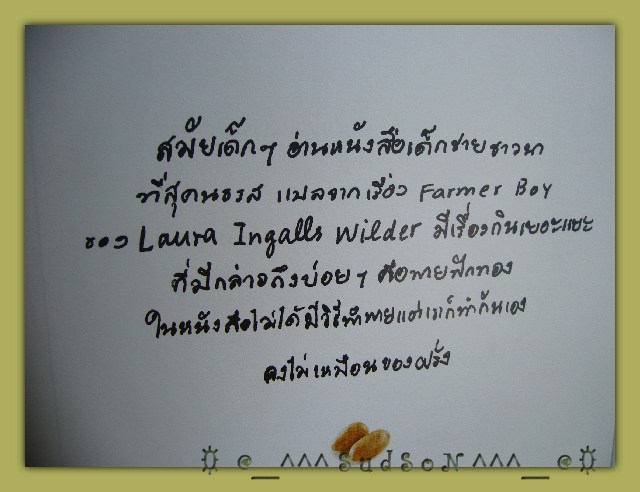 สมัยเด็กๆ อ่านหนังสือเด็กชายชาวนา
ที่สุคนธรส แปลจากเรื่อง Farmer Boy
ของ Laura Ingalls Wilder มีเรื่องกินเยอะแยะ
ที่มีกล่าวถึงบ่อยๆ คือพายฟักทอง
ในหนังสือไม่ได้มีวิธีทำพายแต่เราก็ทำกันเอง
คงไม่เหมือนของฝรั่ง
☼ e_^^^SudSoN^^^_e☼